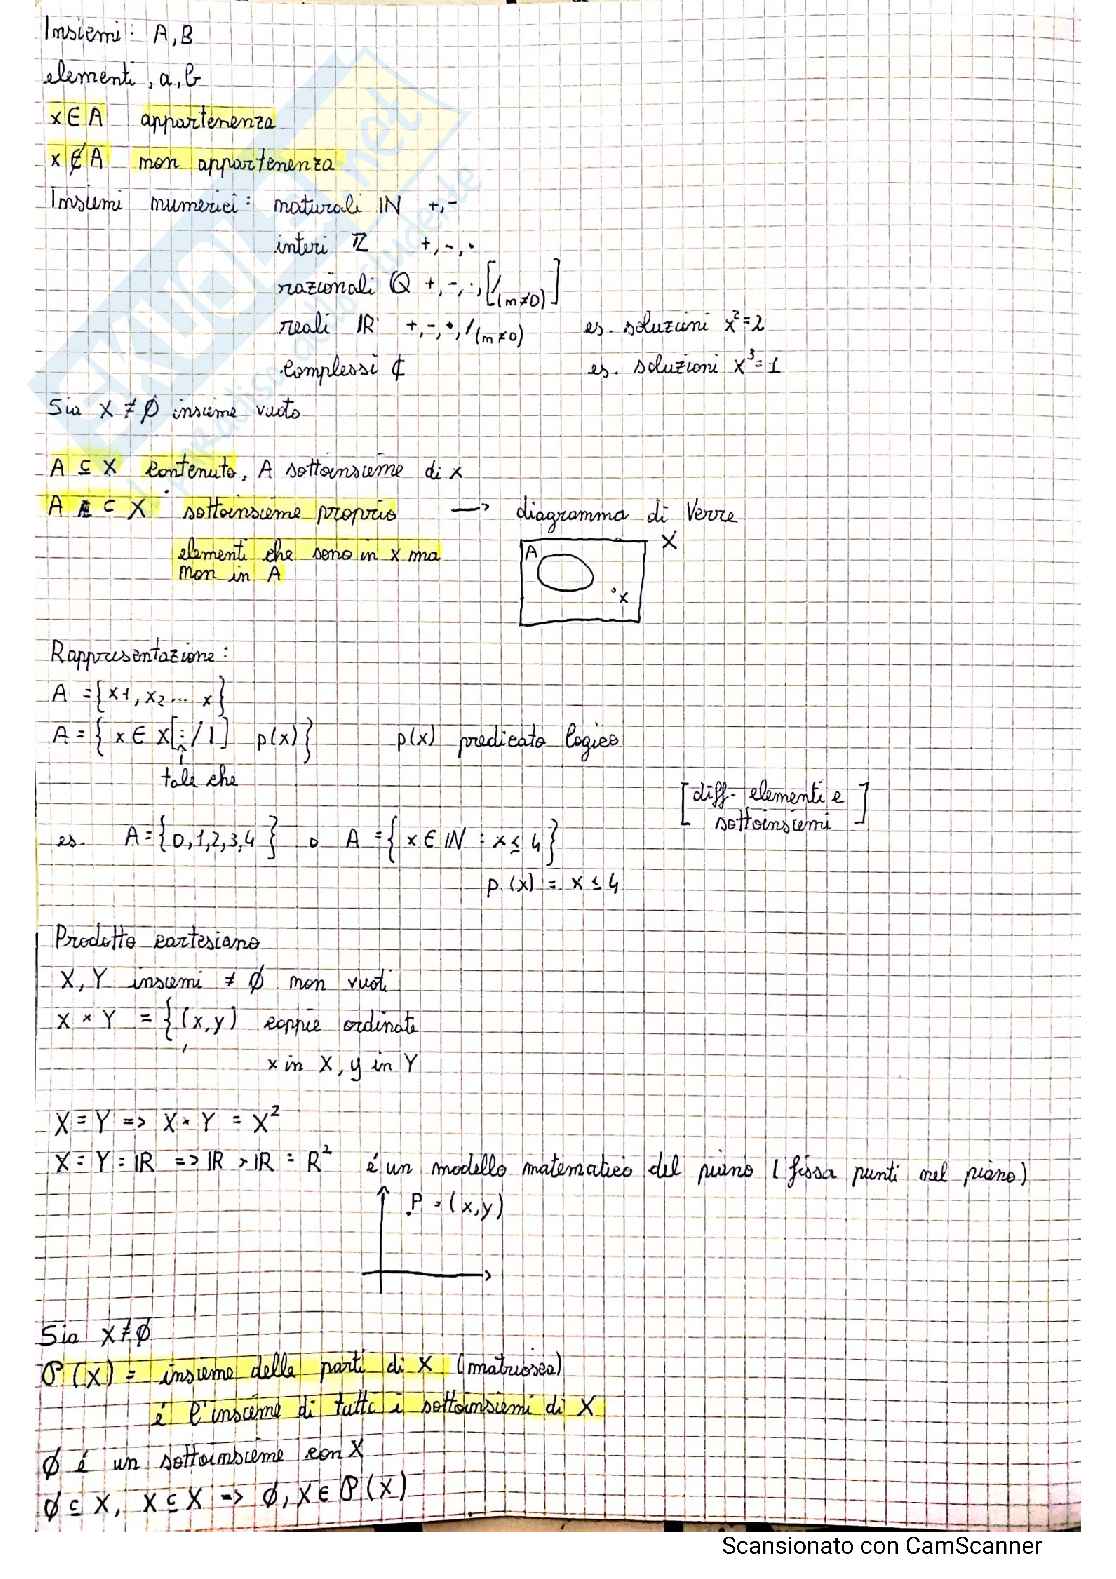 Insiemi: A, B
elementi, a, b
x ∈ A appartenenza
x ∉ A non appartenenza
Insiemi numerici: naturali ℕ +, -
interi ℤ +, -, ·
razionali ℚ +, -, ·, [/(m≠0)]
reali ℝ +, -, ·, /(m≠0) es. soluzioni x²=2
complessi ℂ es. soluzioni x³=1
Sia X ≠ ∅ insieme vuoto
A ⊆ X contenuto, A sottoinsieme di x
A ⊂ X sottoinsieme proprio → diagramma di Verre
elementi che sono in x ma
non in A
X
A
x
Rappresentazione:
A = {x1, x2 ... x}
A = { x ∈ X [:/|] p(x)} p(x) predicato logico
tale che
[diff. elementi e
sottoinsiemi]
es. A = {0,1,2,3,4} o A = { x ∈ ℕ : x ≤ 4 }
p(x) = x ≤ 4
Prodotto cartesiano
X, Y insiemi ≠ ∅ non vuoti
X × Y = {(x,y) coppie ordinate
x in X, y in Y
X = Y => X × Y = X²
X = Y = ℝ => ℝ × ℝ = R² é un modello matematico del piano (fissa punti nel piano)
P = (x,y)
Sia X ≠ ∅
℘(X) = insieme delle parti di X (matriosca)
é l'insieme di tutti i sottoinsiemi di X
∅ é un sottoinsieme con X
∅ ⊆ X, X ⊆ X => ∅, X ∈ ℘(X)
SKUOLA.net
Scansionato con CamScanner